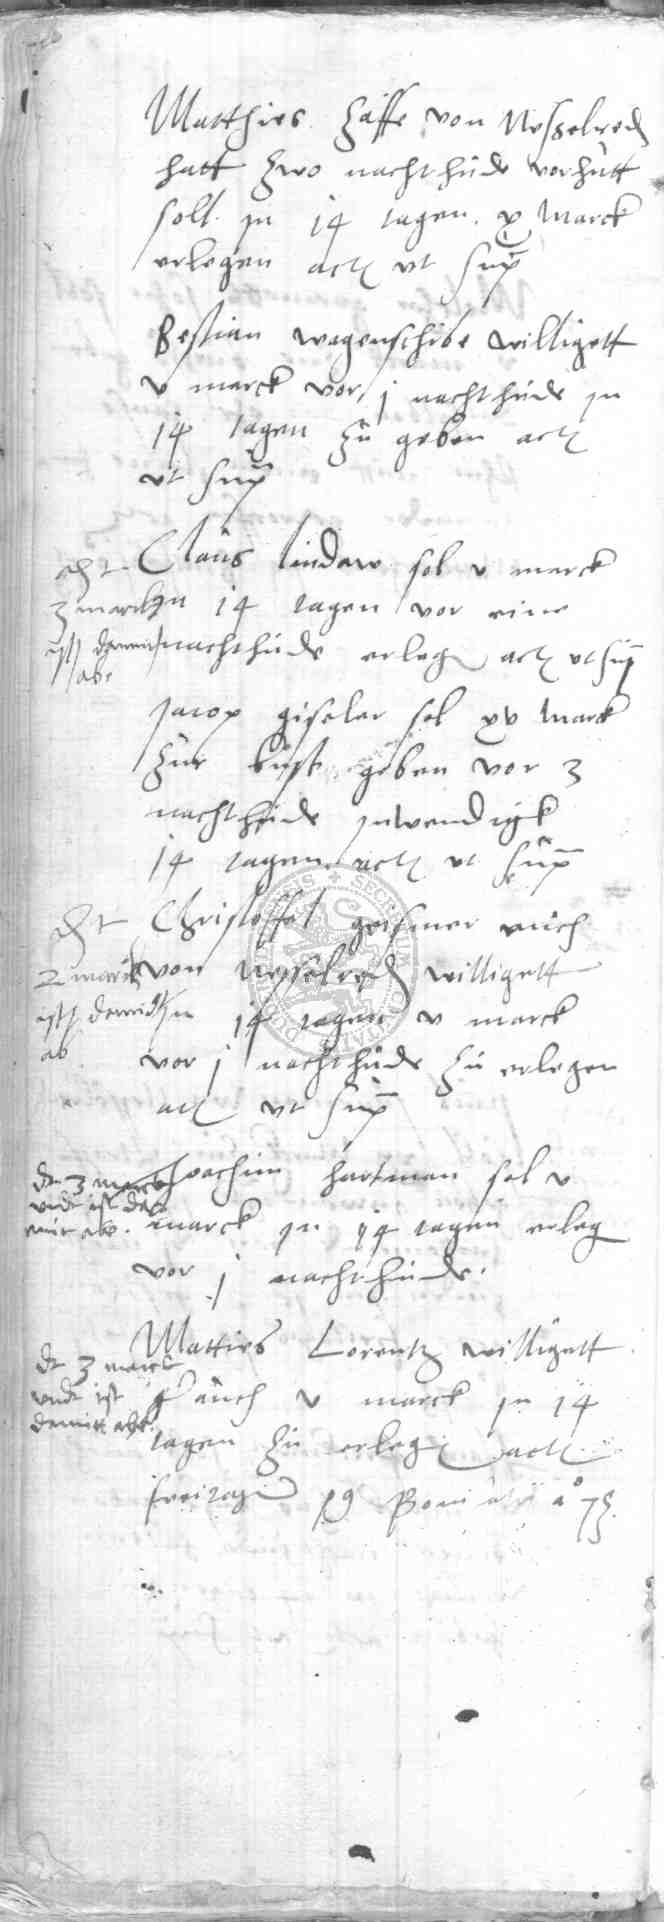 Matthies Haffe von Nesselred
hatt zwo nachthude vorhutt
soll in 14 tagen x Marck
erlegen act ut sup
Bestian wagenschibe willigett
v marck vor j nachthude in
14 tagen zu geben act
ut sup
dt
3 marck
ist damit
abe
Claus lindaw sol v marck
in 14 tagen vor eine
nachthude erleg act ut sup
Jacop giseler sol xv Marck
zur bus geben vor 3
nachthude inwendigk
14 tagen act ut sup
dt
2 marck
ist damit
ab
Christoffel geismer auch
von Nesselred willigett
in 14 tagen v marck
vor j nachthude zu erlegen
act ut sup
dt 3 marck
undt ist da
mit abe
Joachim hartman sol v
marck in 14 tagen erleg
vor j nachthude
dt 3 marck
undt ist
damitt abe
Matties Lorentz willigett
auch v marck in 14
tagen zu erleg act
freitags p9 a° 75